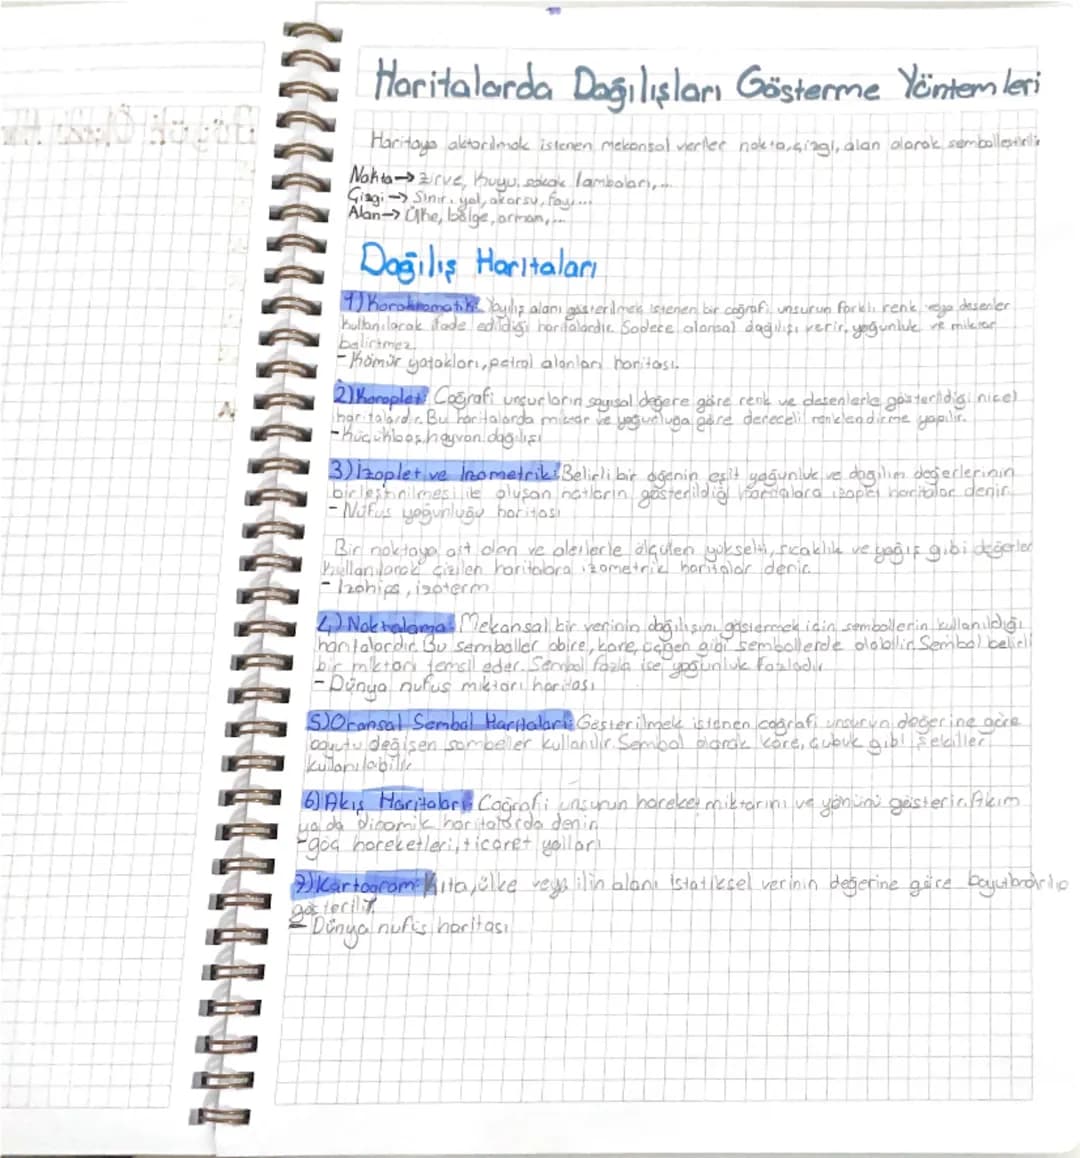 Haritalarda Dağılışları Gösterme Yöntemleri
Haritaya aktarılmak istenen mekansal veriler nokta, çizgi, alan olarak sembolleştirilir
Nokta→ zirve, kuyu, sokak lambaları,...
Çizgi→ Sınır, yol, akarsu, fay,...
Alan→ Ülke, bölge, orman,...
Dağılış Haritaları
1) Korokromatik: Yayılış alanı gösterilmek istenen bir coğrafi unsurun farklı renk veya desenler
kullanılarak ifade edildiği haritalardır. Sadece alansal dağılışı verir, yoğunluk ve miktar
belirtmez
- Kömür yatakları, petrol alanları haritası.
2) Koroplet: Coğrafi unsurların sayısal değere göre renk ve desenlerle gösterildiği nicel
haritalardır. Bu haritalarda miktar ve yoğunluğa göre dereceli renklendirme yapılır.
- Küçükbaş hayvan dağılışı
3) İzoplet ve İzometrik: Belirli bir öğenin eşit yoğunluk ve dağılım değerlerinin
birleştirilmesi ile oluşan hatların gösterildiği haritalara izoplet haritalar denir.
- Nüfus yoğunluğu haritası
Bir noktaya ait olan ve aletlerle ölçülen yükselti, sıcaklık ve yağış gibi değerler
kullanılarak çizilen haritalara izometrik haritalar denir.
- İzohips, izoterm
4) Noktalama: Mekansal bir verinin dağılışını göstermek için sembollerin kullanıldığı
haritalardır. Bu semboller daire, kare, üçgen gibi sembollerde olabilir. Sembol belirli
bir miktarı temsil eder. Sembol fazla ise yoğunluk fazladır
- Dünya nufus miktarı haritası
5) Oransal Sembol Haritaları: Gösterilmek istenen coğrafi unsurun değerine göre
boyutu değişen semboller kullanılır. Sembol olarak kare, çubuk gibi şekiller
kullanılabilir
6) Akış Haritaları: Coğrafi unsurun hareket miktarını ve yönünü gösterir. Akım
ya da dinamik haritalarda denir.
- göç hareketleri, ticaret yolları
7) Kartogram: Kıta, ülke veya ilin alanı istatiksel verinin değerine göre boyutlandırılıp
gösterilir.
- Dünya nufüs haritası